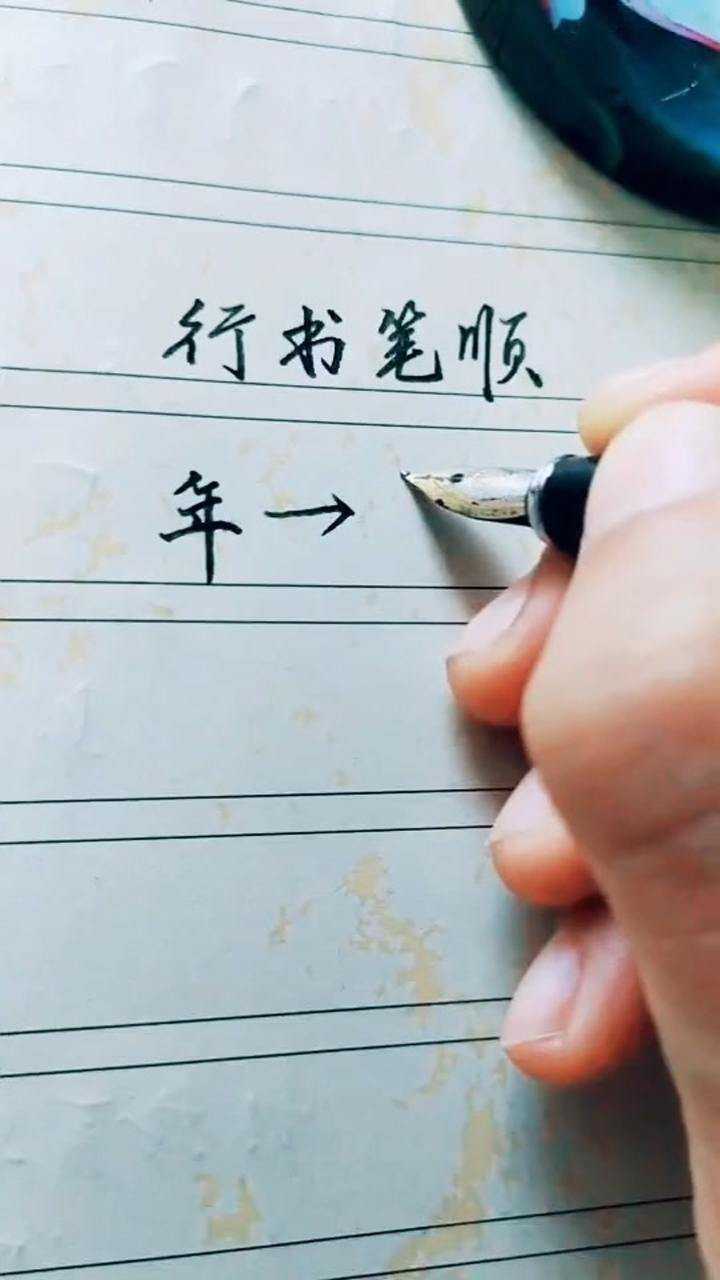 行书笔顺
年→